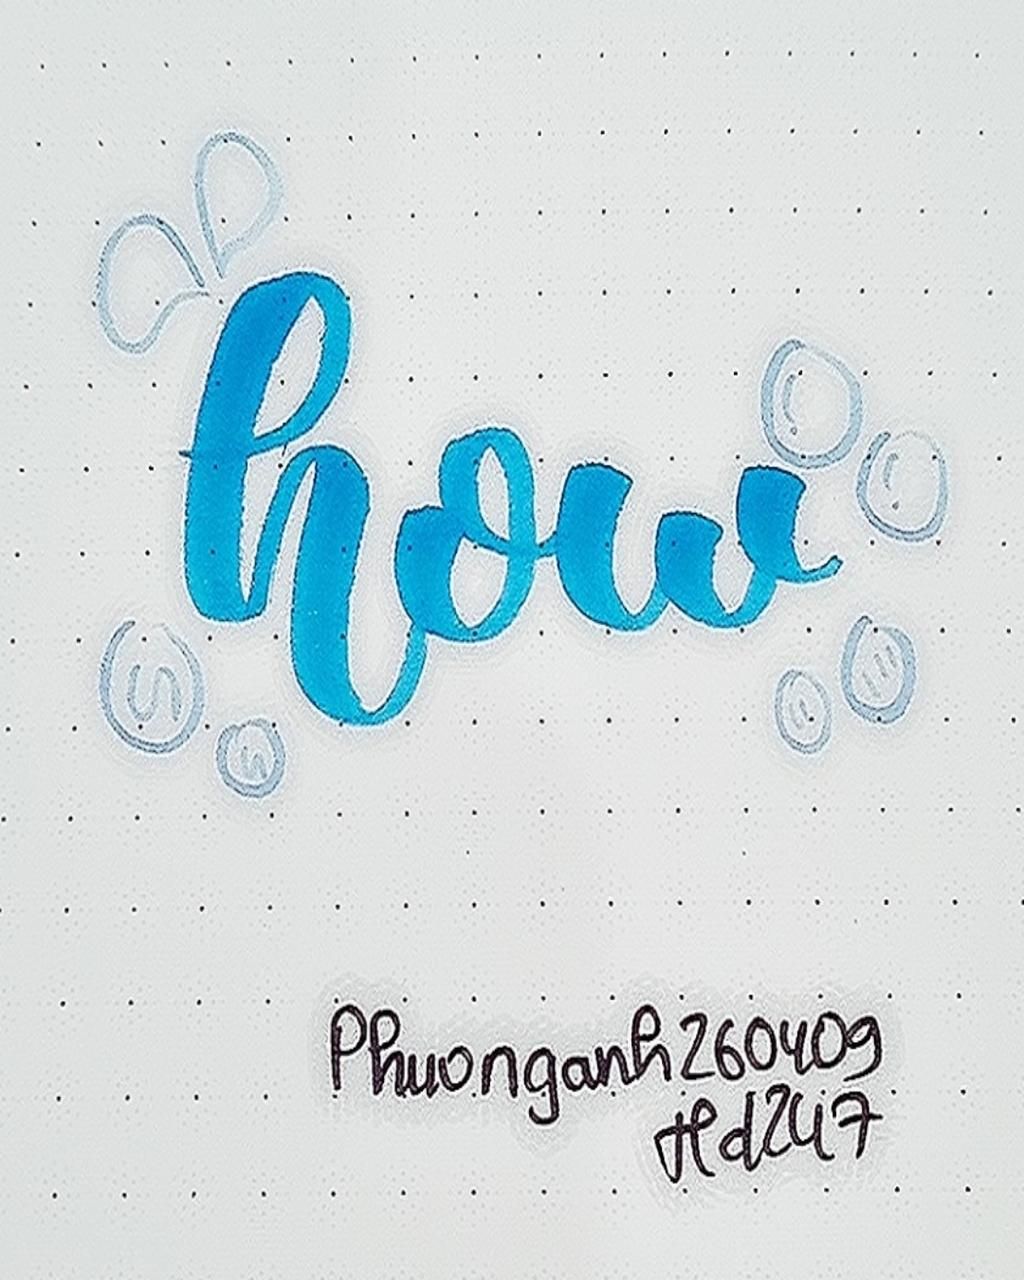 how
Phuonganh260409
Hd247